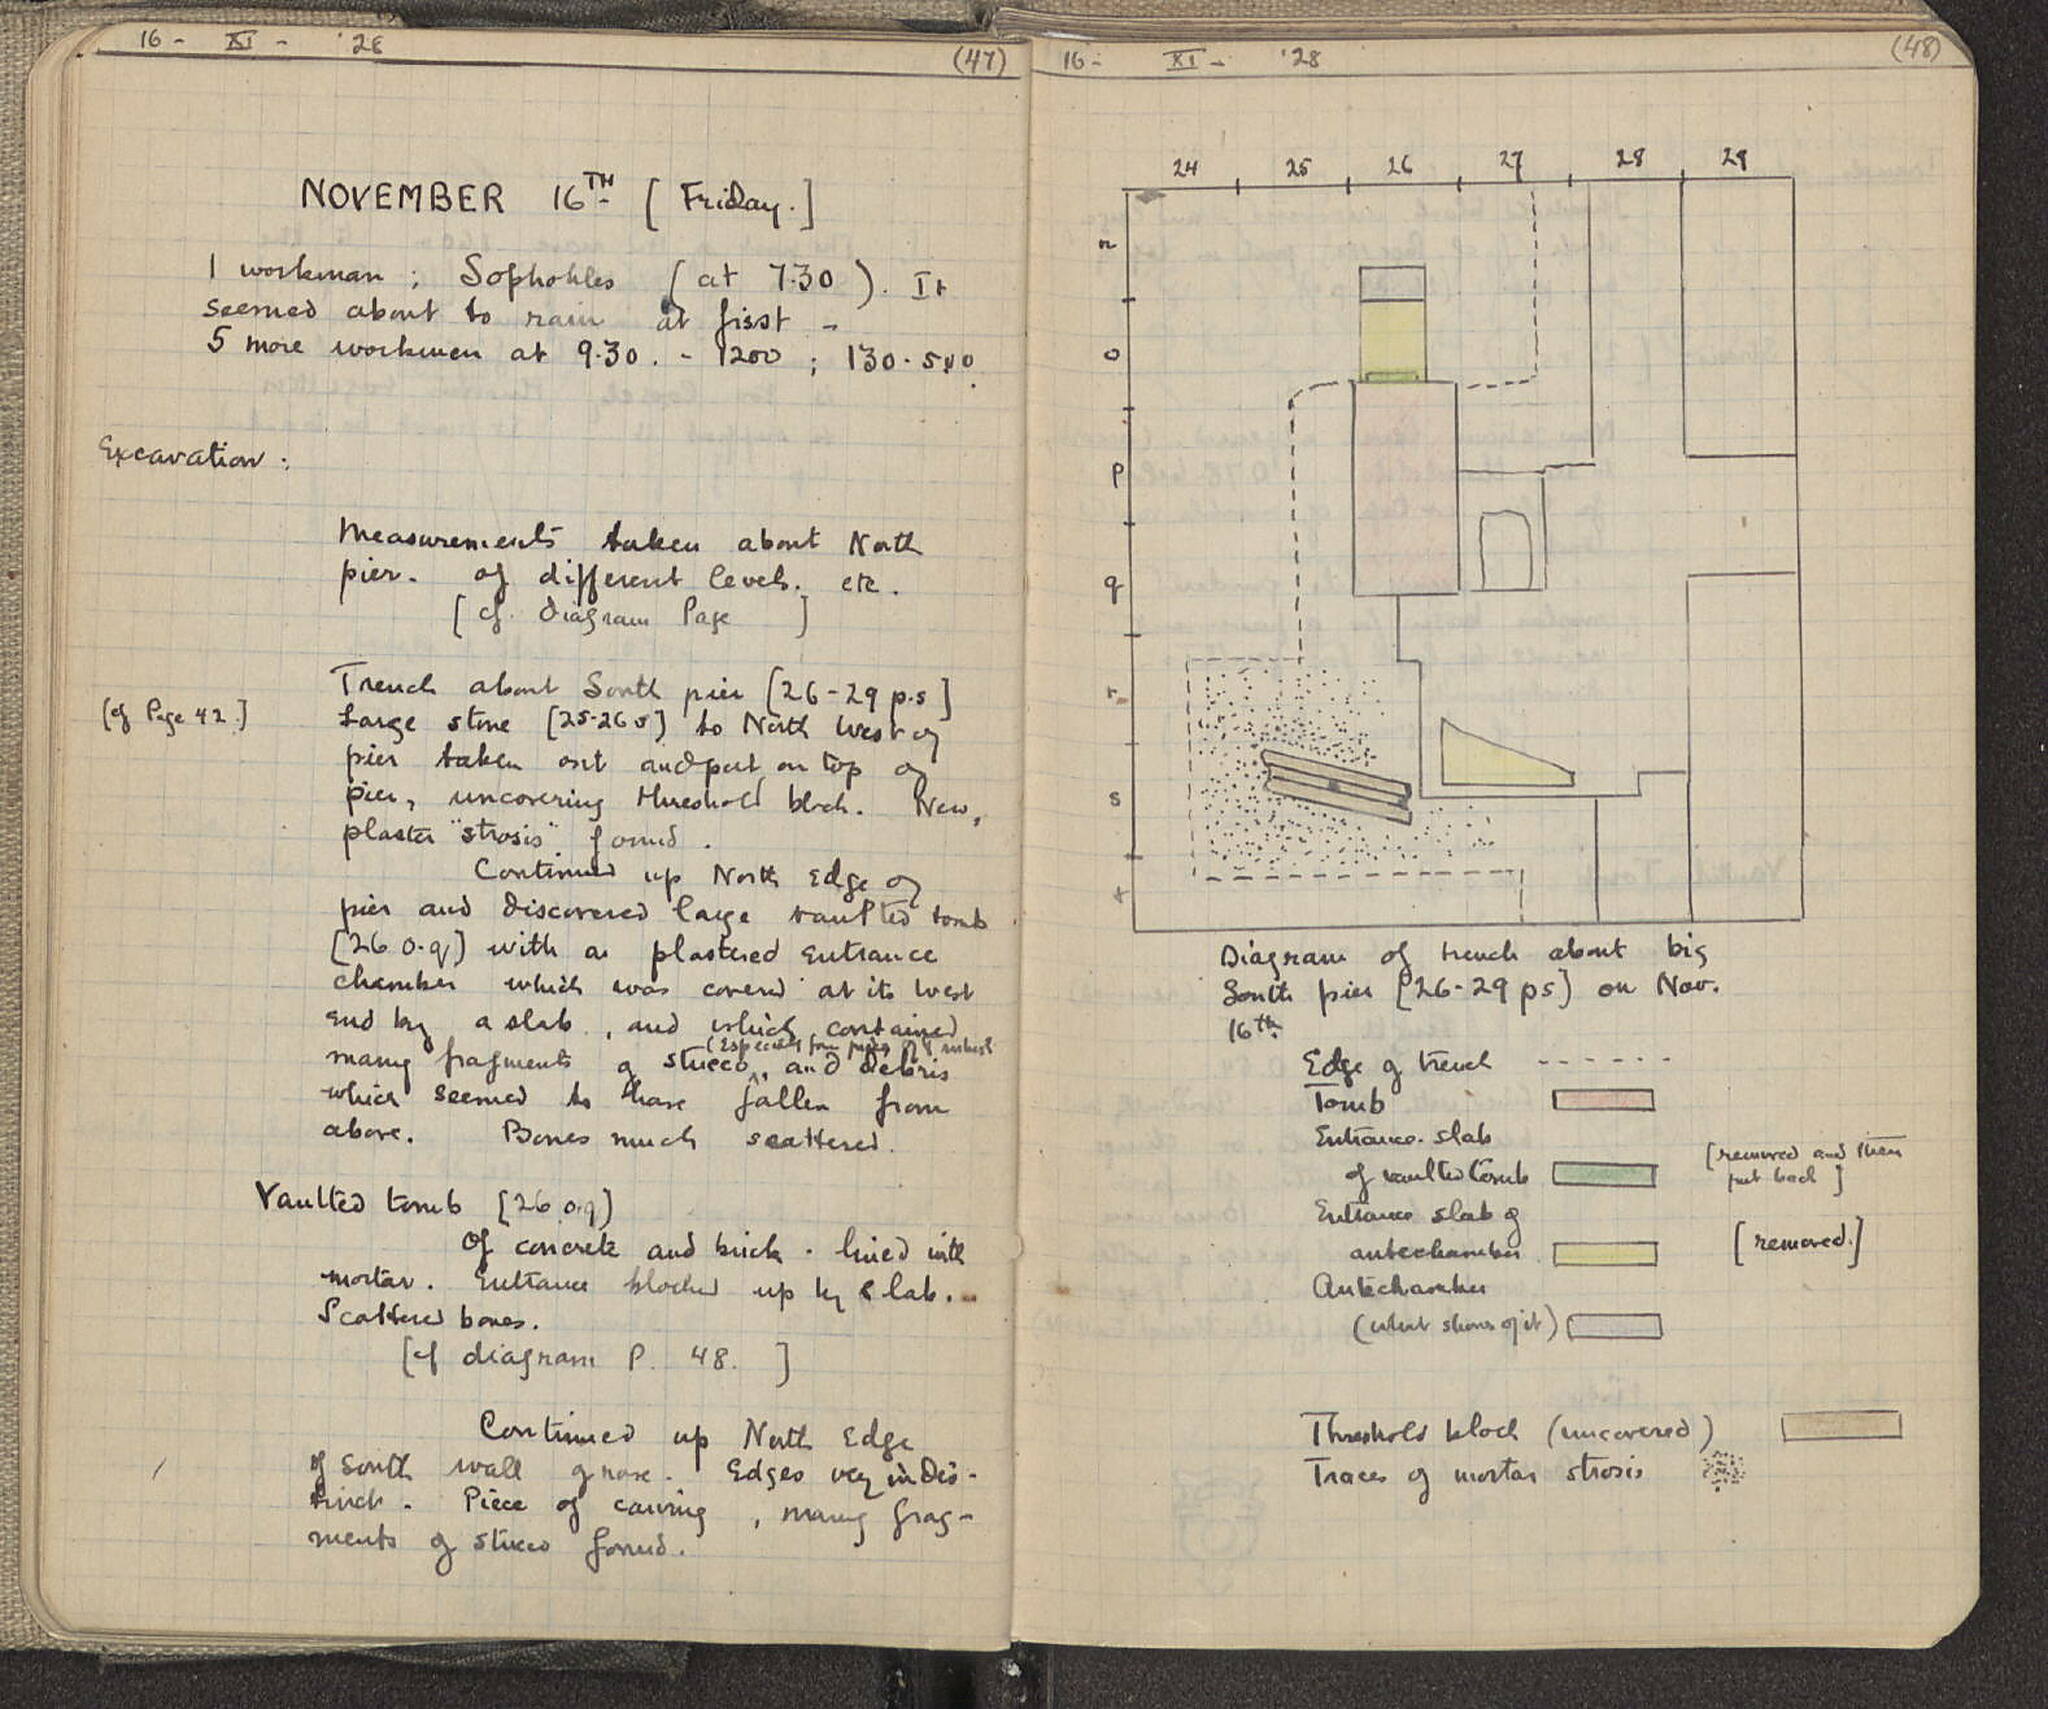 16 - XI - '28
(47)
NOVEMBER 16TH [Friday.]
1 workman ; Sophokles (at 7.30). It
seemed about to rain at first -
5 more workmen at 9.30. - 1200 ; 130 - 500.
Excavation :
Measurements taken about North
pier. of different levels. etc.
[cf. diagram Page ]
Trench about South pier [26-29 p.s]
[cf Page 42.]
Large stone [25-26 s] to North West of
pier taken out and put on top of
pier, uncovering threshold block. New,
plaster "strosis" found.
Continued up North Edge of
pier and discovered large vaulted tomb
[26 o.q] with a plastered entrance
chamber which was covered at its West
end by a slab, and which contained
(Especially four pieces of
many fragments of stucco, and debris
which seemed to have fallen from
above. Bones much scattered.
Vaulted tomb [26 o.q]
Of concrete and brick. lined with
mortar. Entrance blocked up by slab.
Scattered bones.
[cf diagram P. 48. ]
Continued up North Edge
of South wall of nave. Edges very indis-
tinct. Piece of carving, many frag-
ments of stucco found.
16 - XI - '28
(48)
24 25 26 27 28 29
n
o
p
q
r
s
t
Diagram of trench about big
South pier [26-29 p s] on Nov.
16th.
Edge of trench
Tomb
Entrance slab
of vaulted tomb
[removed and then
put back]
Entrance slab of
antechamber
[removed.]
Antechamber
(what shows of it)
Threshold block (uncovered)
Traces of mortar strosis